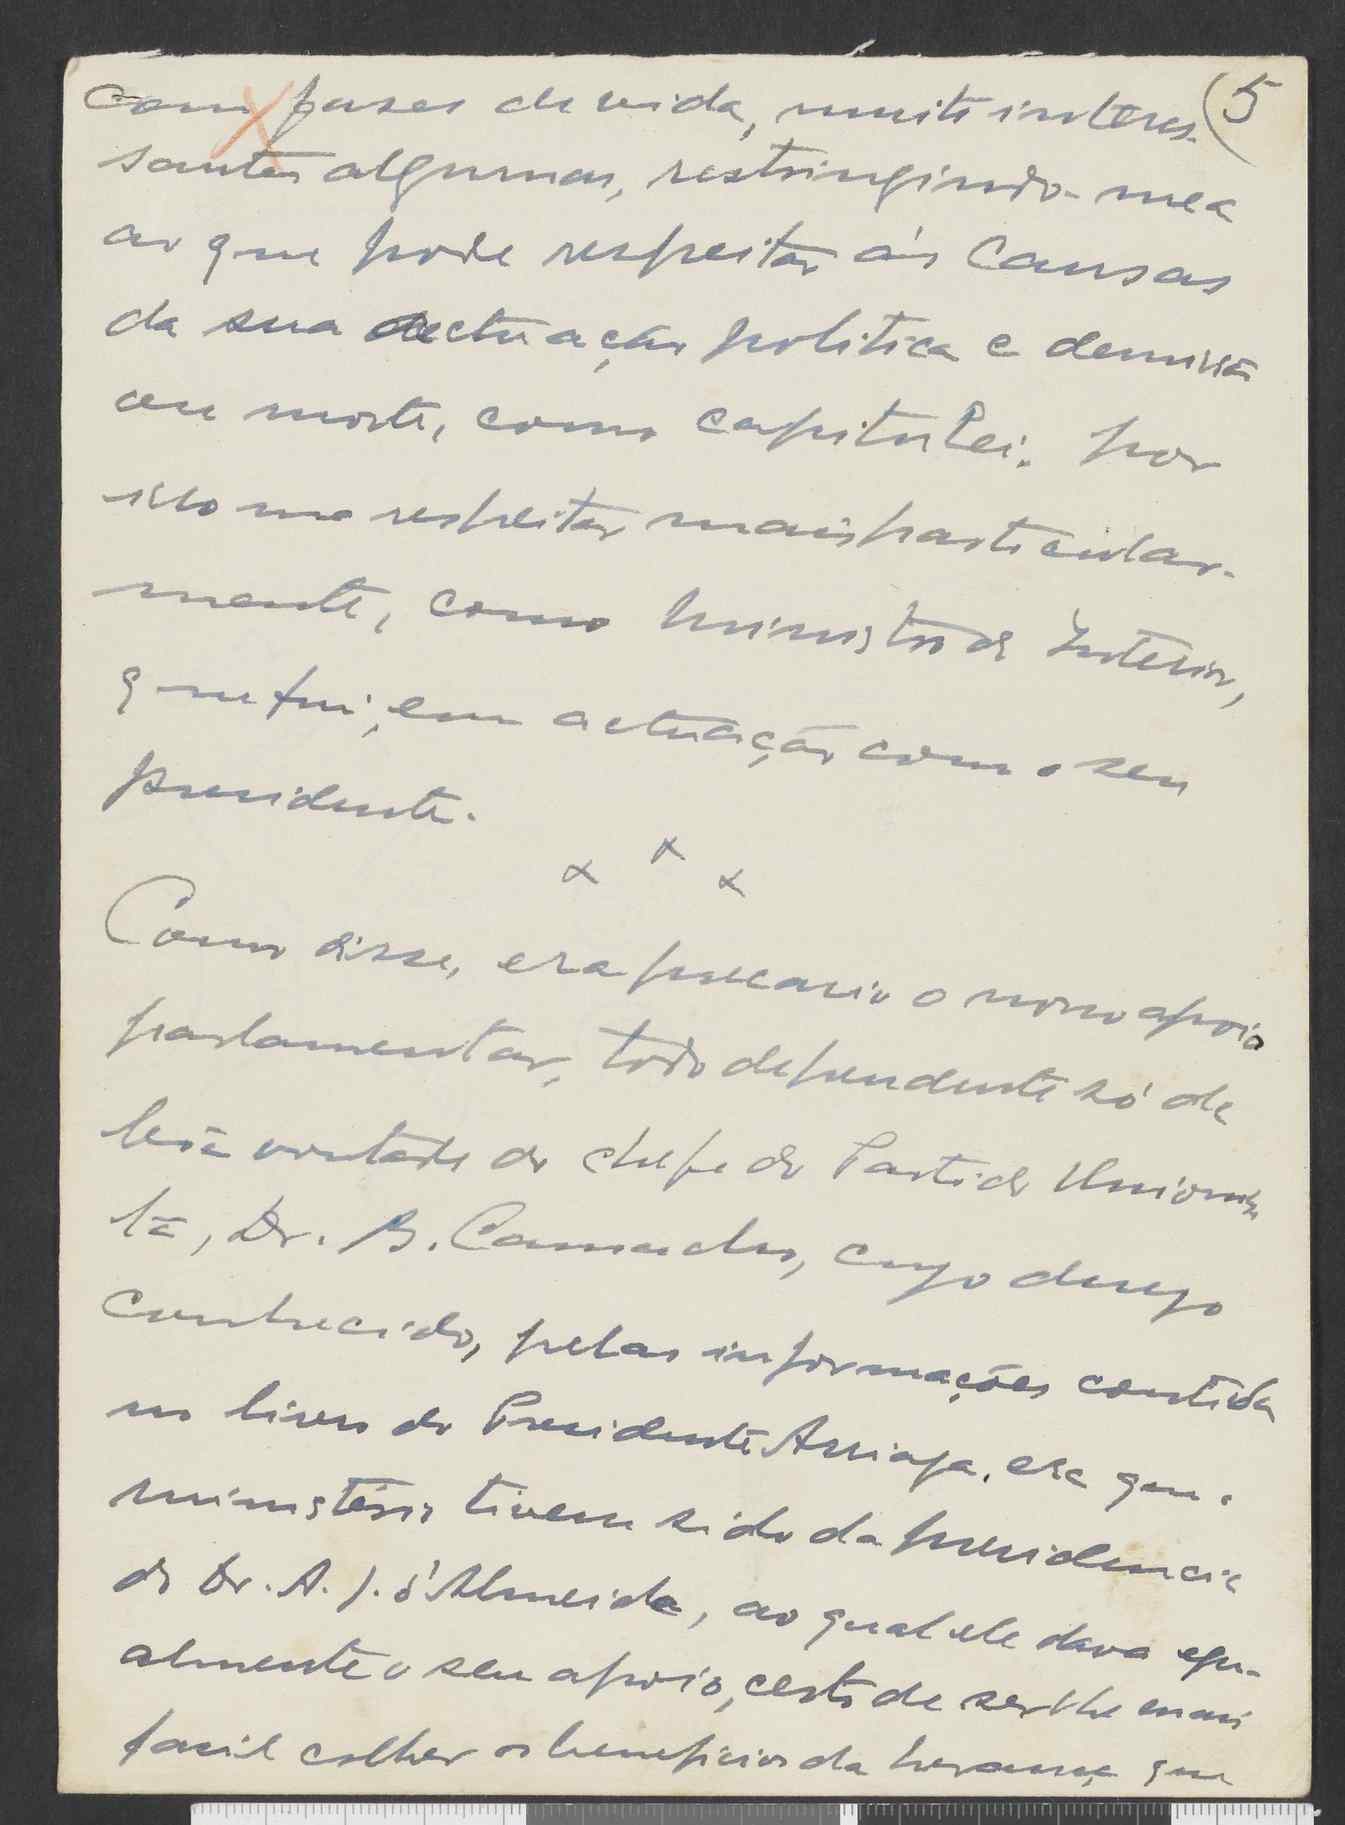 5
com fases de vida, muito interes-
santes algumas, restringindo-me a
ao que pode respeitar ás causas
da sua actuação politica e demissão
ou morte, como capitulei. Por
isso me respeitar mais particular-
mente, como ministro do Interior,
que fui, em actuação com o seu
presidente.
x x x
Como disse, era precario o nosso apoio
parlamentar, todo dependente só de
boa vontade do chefe do Partido Unionis
ta, Dr. B. Camacho, cujo desejo
conhecido, pelas informações contida
no livro do Presidente Arriaga, era que o
ministério tivesse sido da presidencia
do Dr. A. J. d'Almeida, ao qual ele dava egu-
almente o seu apoio, certo de ser lhe mais
facil colher os beneficios da herança que